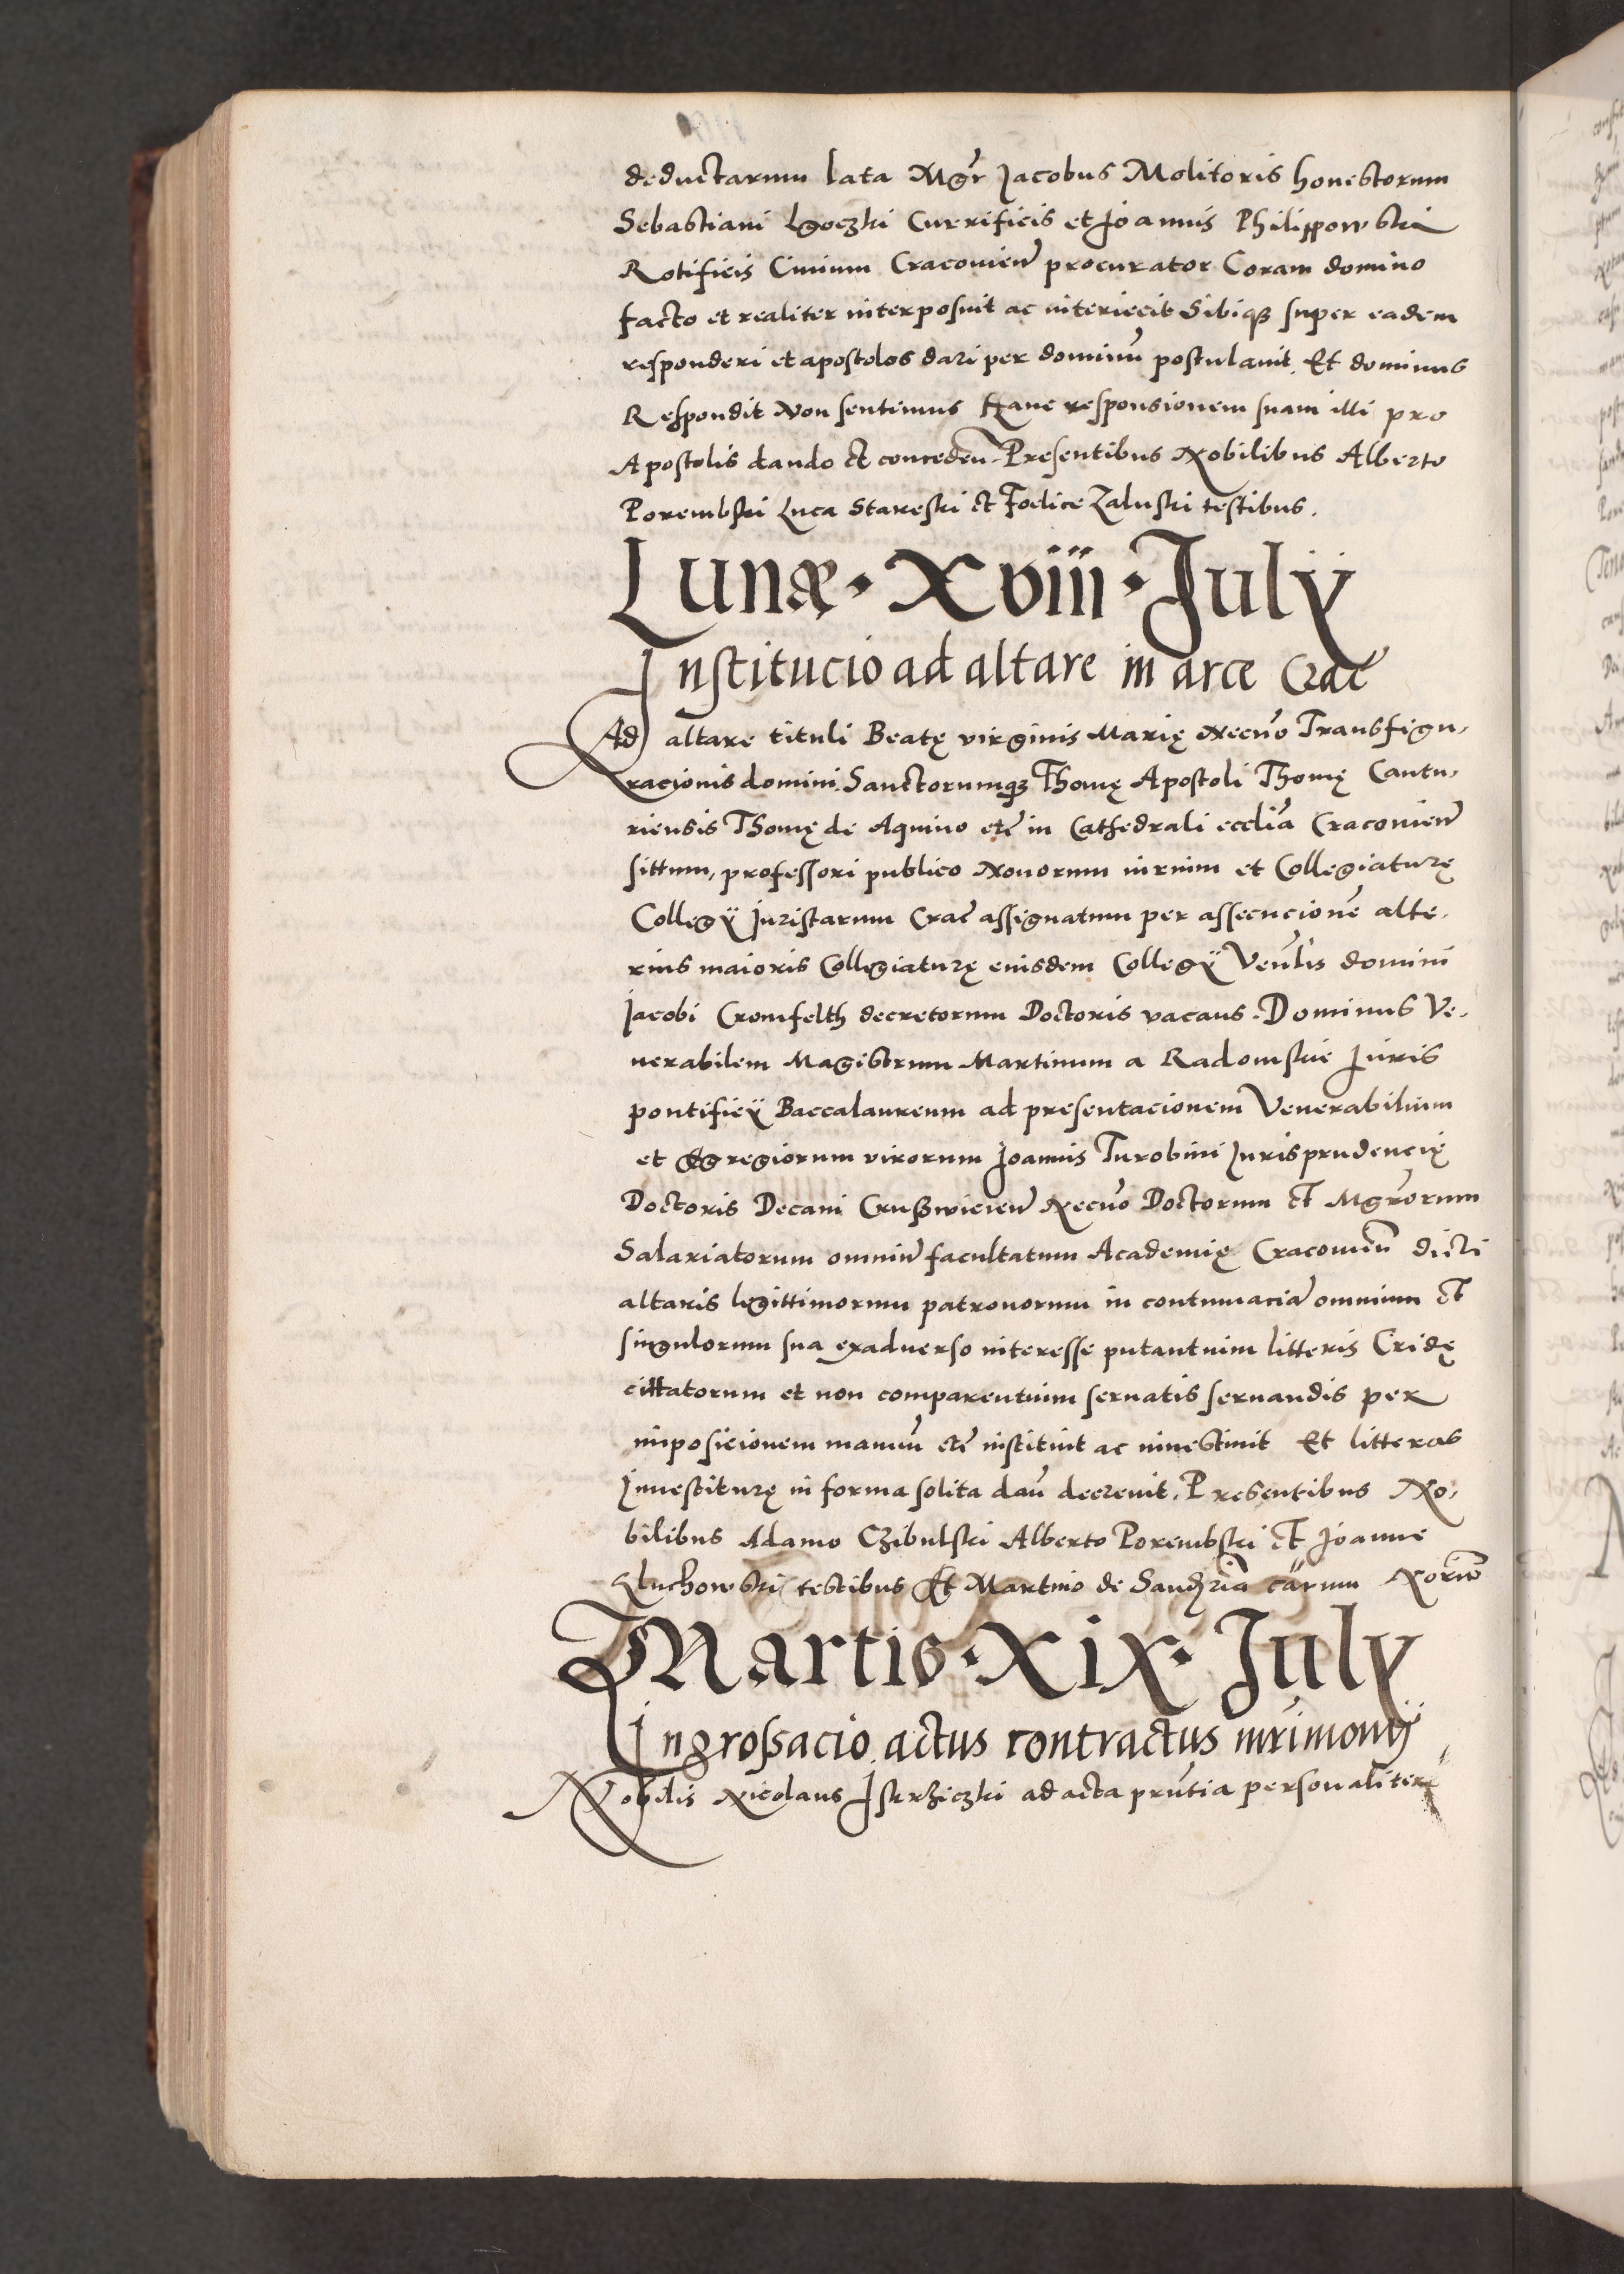 deductarum lata Mgr̄ Jacobus Molitoris honestorum
Sebastiani Lgoczki Currificis et Joannis Philippowski
Rotificis Ciuium Cracovien̄ procurator Coram domino
facto et realiter interposuit ac interiecit Sibiqȝ super eadem
responderi et apostolos dari per dominū postulauit. Et dominus
Respondit Non sentimus Hanc responsionem suam illi pro
Apostolis dando et conceden̄. Presentibus Nobilibus Alberto
Porembski Luca Stareski et Foelice Zaluski testibus.
Lunæ · Xviii · July
Institucio ad altare in arce Crac̄
Ad altare tituli Beatę virginis Marię necn̄o Transfigu-
racionis domini Sanctorumqȝ Thomę Apostoli Thomę Cantu-
riensis Thomę de Aquino etc̄ in Cathedrali eccli̅a Cracovien̄
sittum, professori publico Nouorum iurium et Collegiaturę
Collegÿ Juristarum Crac̄ assignatum per assecucionē alte-
rius maioris Collegiaturę eiusdem Collegÿ Ven̄lis domini
Jacobi Cromfelth decretorum Doctoris vacans. Dominus Ve-
nerabilem Magistrum Martinum a Radomskie Juris
pontificÿ Baccalaureum ad presentacionem Venerabilium
et Egregiorum virorum Joannis Turobini Jurisprudencię
Doctoris Decani Crußwicien̄ Necn̄o Doctorum et Mgr̄orum
Salariatorum omniū facultatum Academię Cracovien̄ dicti
altaris legittimorum patronorum in contumaciā omnium et
singulorum sua exaduerso interesse putantuim litteris Cridę
cittatorum et non comparentuim seruatis seruandis per
imposicionem manuū etc̄ instituit ac inuestiuit Et litteras
Inuestiturę in forma solita dan̄ decreuit. Presentibus No-
bilibus Adamo Czibulski Alberto Porembski et Joanne
Gluchowski testibus Et Martino de carum Norio
Martis · Xix · July
Ingroßacio actus contractus mr̄imonÿ
Nobilis Nicolaus Iskrziczki ad acta prn̄tia personaliter